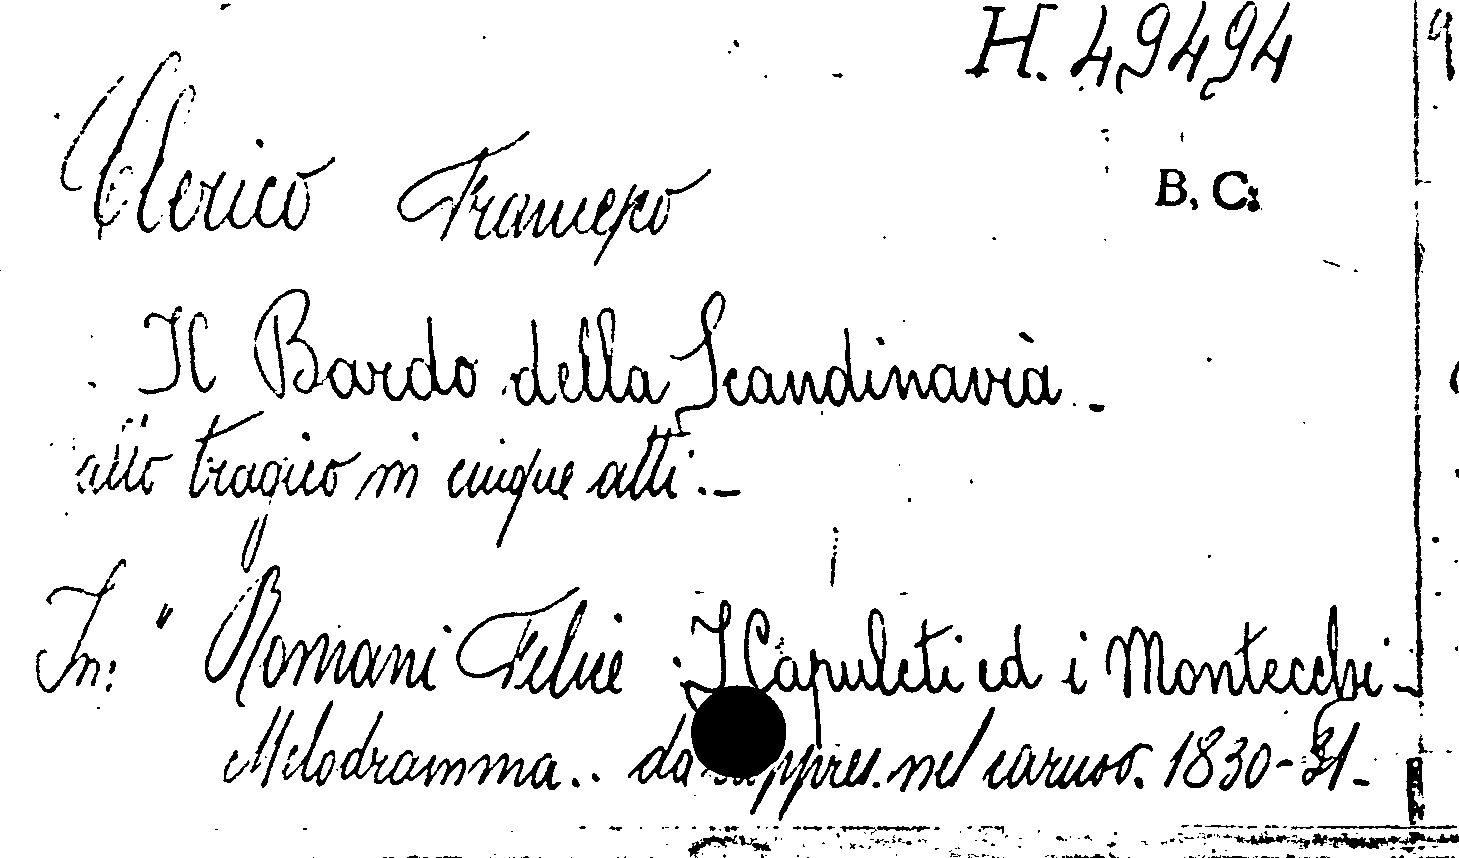 H. 49494
B. C.
Clerico Francesco
Il Bardo della Scandinavia -
allo tragico in cinque atti. -
In: " Romani Felice . I Capuleti ed i Montecchi -
Melodramma.. da rappres. nel carnov. 1830-31-